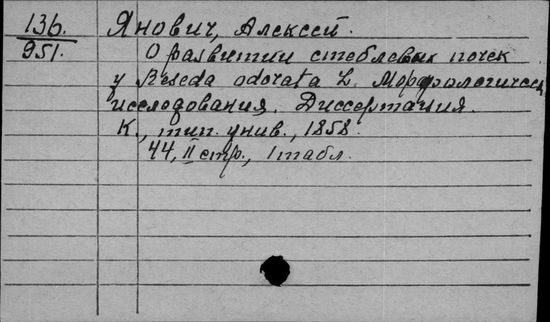 136.
951.
Янович, Алексей.
О развитии стеблевых почек
у Reseda odorata L. Морфологическ
исследования. Диссертация.
К., тип. унив., 1858.
44, II стр., 1 табл.